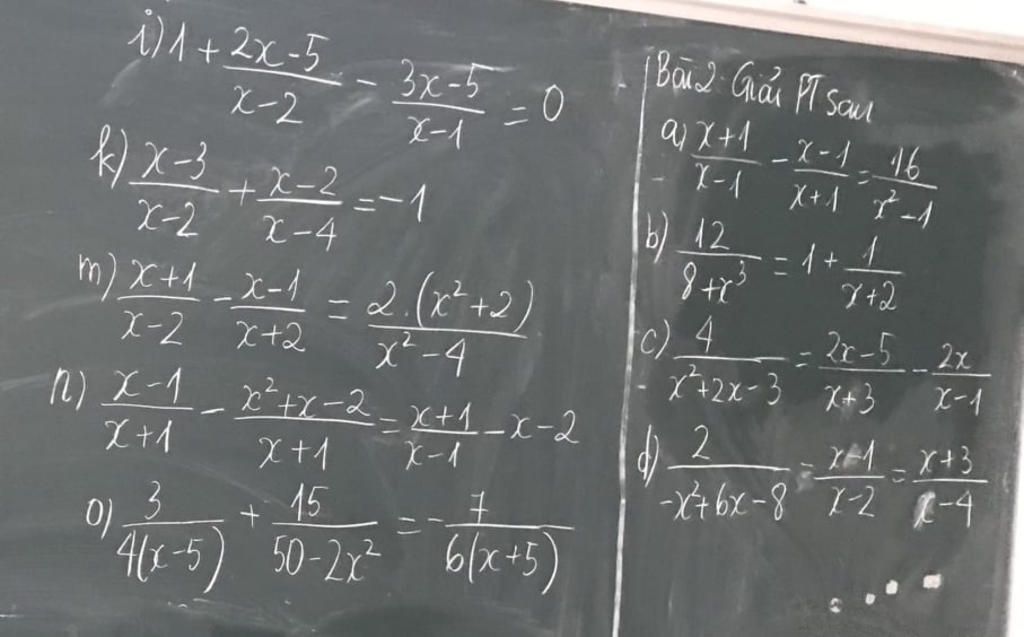 i) 1 + (2x-5)/(x-2) - (3x-5)/(x-1) = 0
k) (x-3)/(x-2) + (x-2)/(x-4) = -1
m) (x+1)/(x-2) - (x-1)/(x+2) = 2.(x²+2)/(x²-4)
n) (x-1)/(x+1) - (x²+x-2)/(x+1) = (x+1)/(x-1) - x - 2
o) 3/(4(x-5)) + 15/(50-2x²) = -7/(6(x+5))
Bài 2: Giải PT sau
a) (x+1)/(x-1) - (x-1)/(x+1) = 16/(x²-1)
b) 12/(8+x³) = 1 + 1/(x+2)
c) 4/(x²+2x-3) = (2x-5)/(x+3) - 2x/(x-1)
d) 2/(-x²+6x-8) - (x-1)/(x-2) = (x+3)/(x-4)